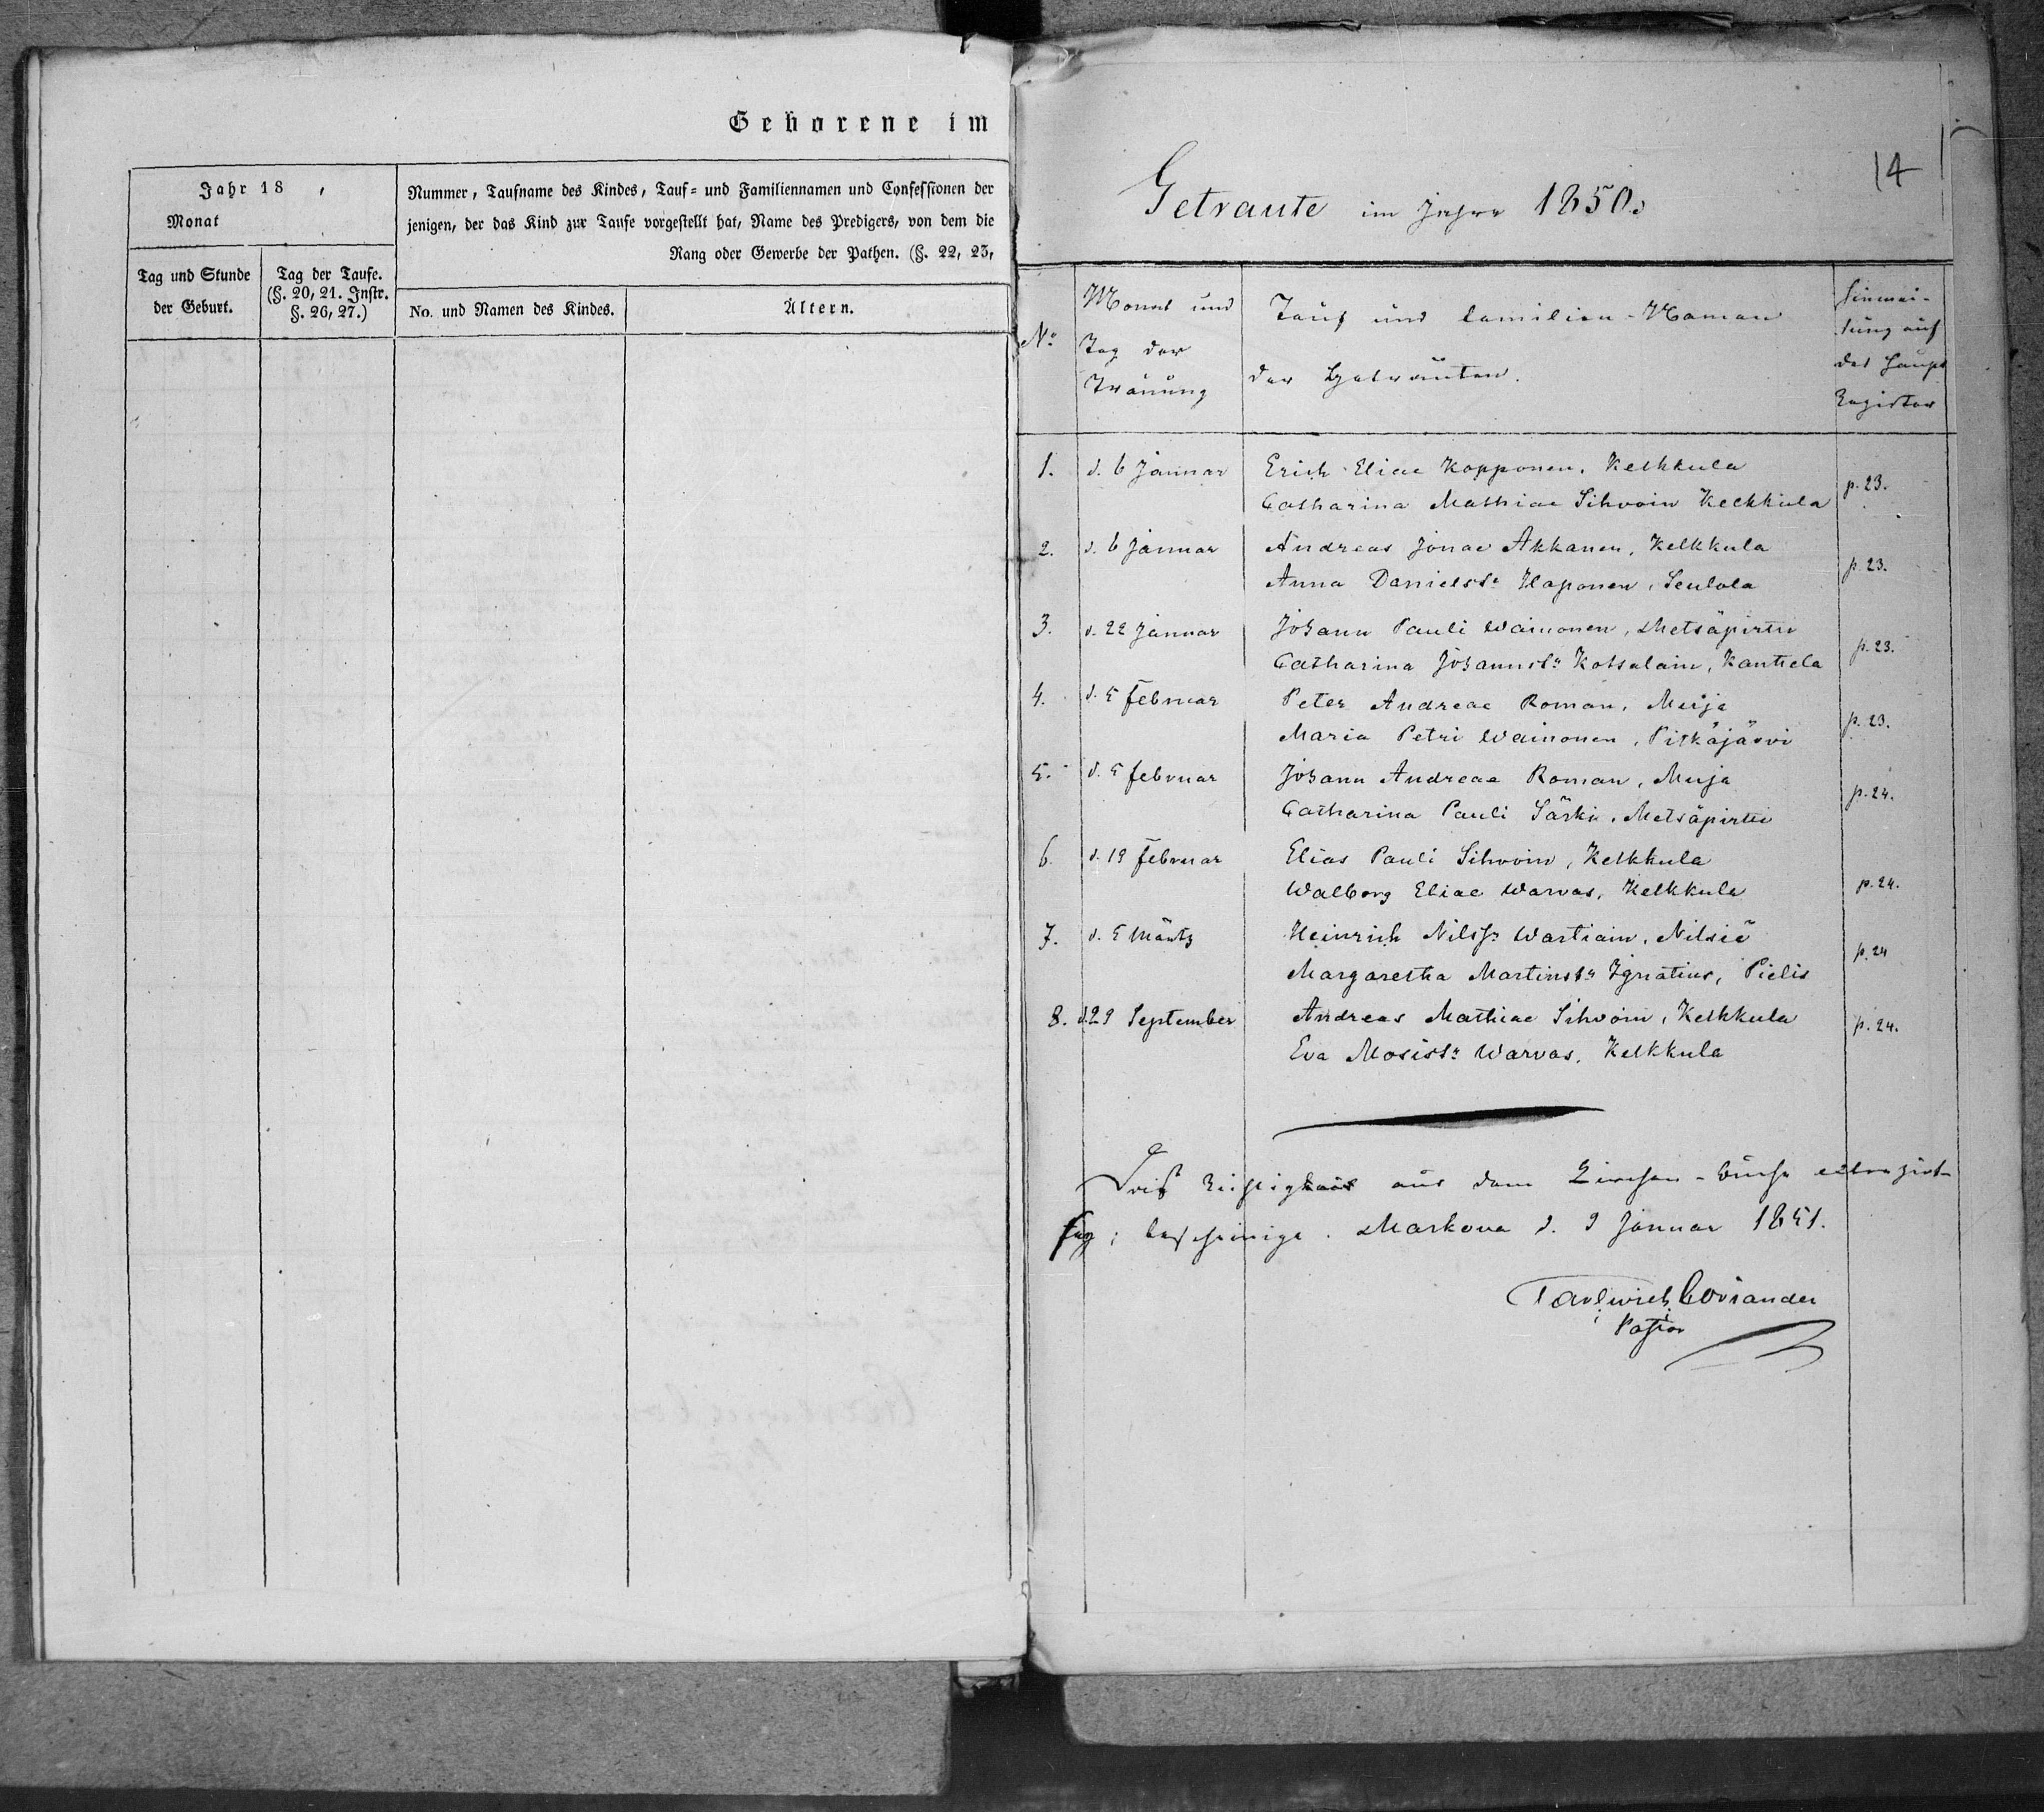 Geborene im
Jahr 18 ,
Monat
Nummer, Taufname des Kindes, Tauf- und Familiennamen und Confessionen der
jenigen, der das Kind zur Taufe vorgestellt hat, Name des Predigers, von dem die
Rang oder Gewerbe der Pathen. (§. 22, 23,
Tag und Stunde
der Geburt.
Tag der Taufe.
(§. 20, 21. Instr.
§. 26, 27.)
No. und Namen des Kindes.
Ältern.
14
Getraute im Jahre 1850.
No
Monat und
Tag der
Trauung
Tauf und Familien-Namen
der Getrauten.
Hinwei-
sung auf
das Haupt
Register
1. d. 6 Januar Erich Eliae Kopponen, Kelkkula
Catharina Mathiae Sihvoin Kelkkula p. 23.
2. d. 6 Januar Andreas Jonae Akkanen, Kelkkula
Anna Danielsto Haponen, Seulola p. 23.
3. d. 22 Januar Johann Pauli Wainonen, Metsäpirtti
Catharina Johannstr Kotsalain, Kantiela p. 23.
4. d. 5 Februar Peter Andreae Roman, Meija
Maria Petri Wainonen, Pitkäjärvi p. 23.
5. d. 5 Februar Johann Andreae Roman, Muja
Catharina Pauli Särki, Metsäpirtti p. 24.
6. d. 19 Februar Elias Pauli Sihvoin, Kelkkula
Walborg Eliae Warvas, Kelkkula p. 24.
7. d. 5 Märtz Heinrich Nilss Wartiain, Nilsiä
Margaretha Martinstr Ignatius, Pielis p. 24
8. d. 29 September Andreas Mathiae Sihvoin, Kelkkula
Eva Mosistr Warvas, Kelkkula p. 24.
Dass Richtigkeit aus dem Kirchen-Buche extrazirt
sey; bescheinige. Markova d. 9 Januar 1851.
Coriander
Pastor